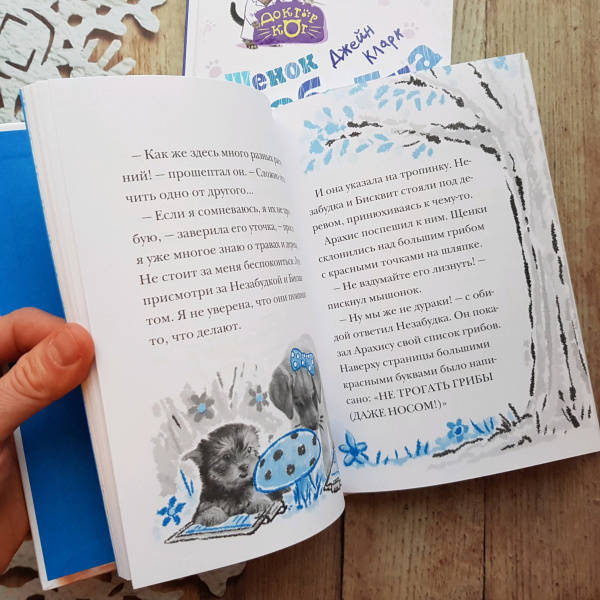 ДОКТОР
КОТ
Джейн
Кларк
щенок
— Как же здесь много разных рас
ний! — прошептал он. — Сложно
чить одно от другого...
— Если я сомневаюсь, я их не про
бую, — заверила его уточка, —
я уже многое знаю о травах и
Не стоит за меня беспокоиться.
присмотри за Незабудкой и Бискви
том. Я не уверена, что они
то, что делают.
И она указала на тропинку. Не-
забудка и Бисквит стояли под де-
ревом, принюхиваясь к чему-то.
Арахис поспешил к ним. Щенки
склонились над большим грибом
с красными точками на шляпке.
— Не вздумайте его лизнуть! —
пискнул мышонок.
— Ну мы же не дураки! — с оби-
дой ответил Незабудка. Он пока-
зал Арахису свой список грибов.
Наверху страницы большими
красными буквами было напи-
сано: «НЕ ТРОГАТЬ ГРИБЫ
(ДАЖЕ НОСОМ!)»